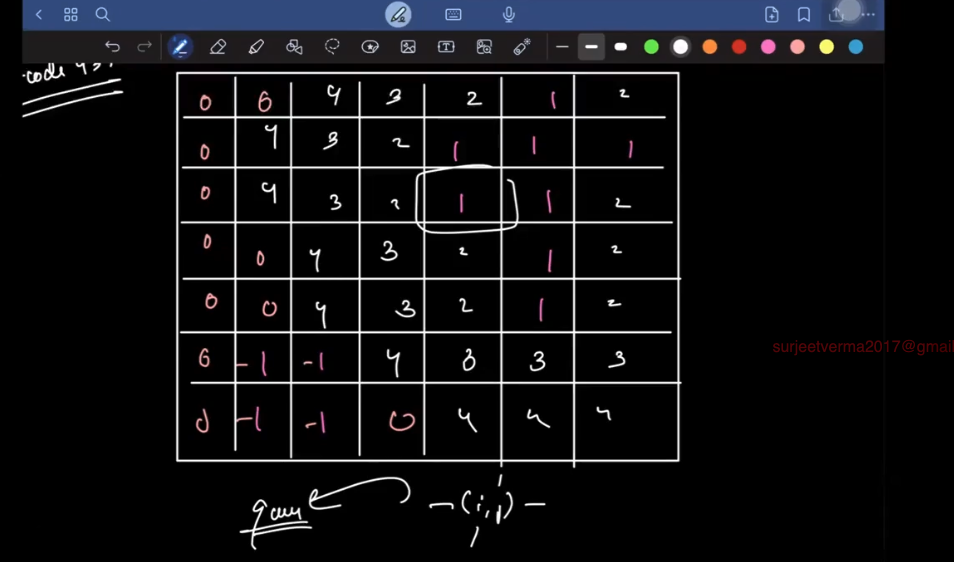 0 0 4 3 2 1 2
0 4 3 2 1 1 1
0 4 3 2 1 1 2
0 0 4 3 2 1 2
0 0 4 3 2 1 2
0 -1 -1 4 3 3 3
0 -1 -1 0 4 4 4
surjeetverma2017@gmail
(i,j)